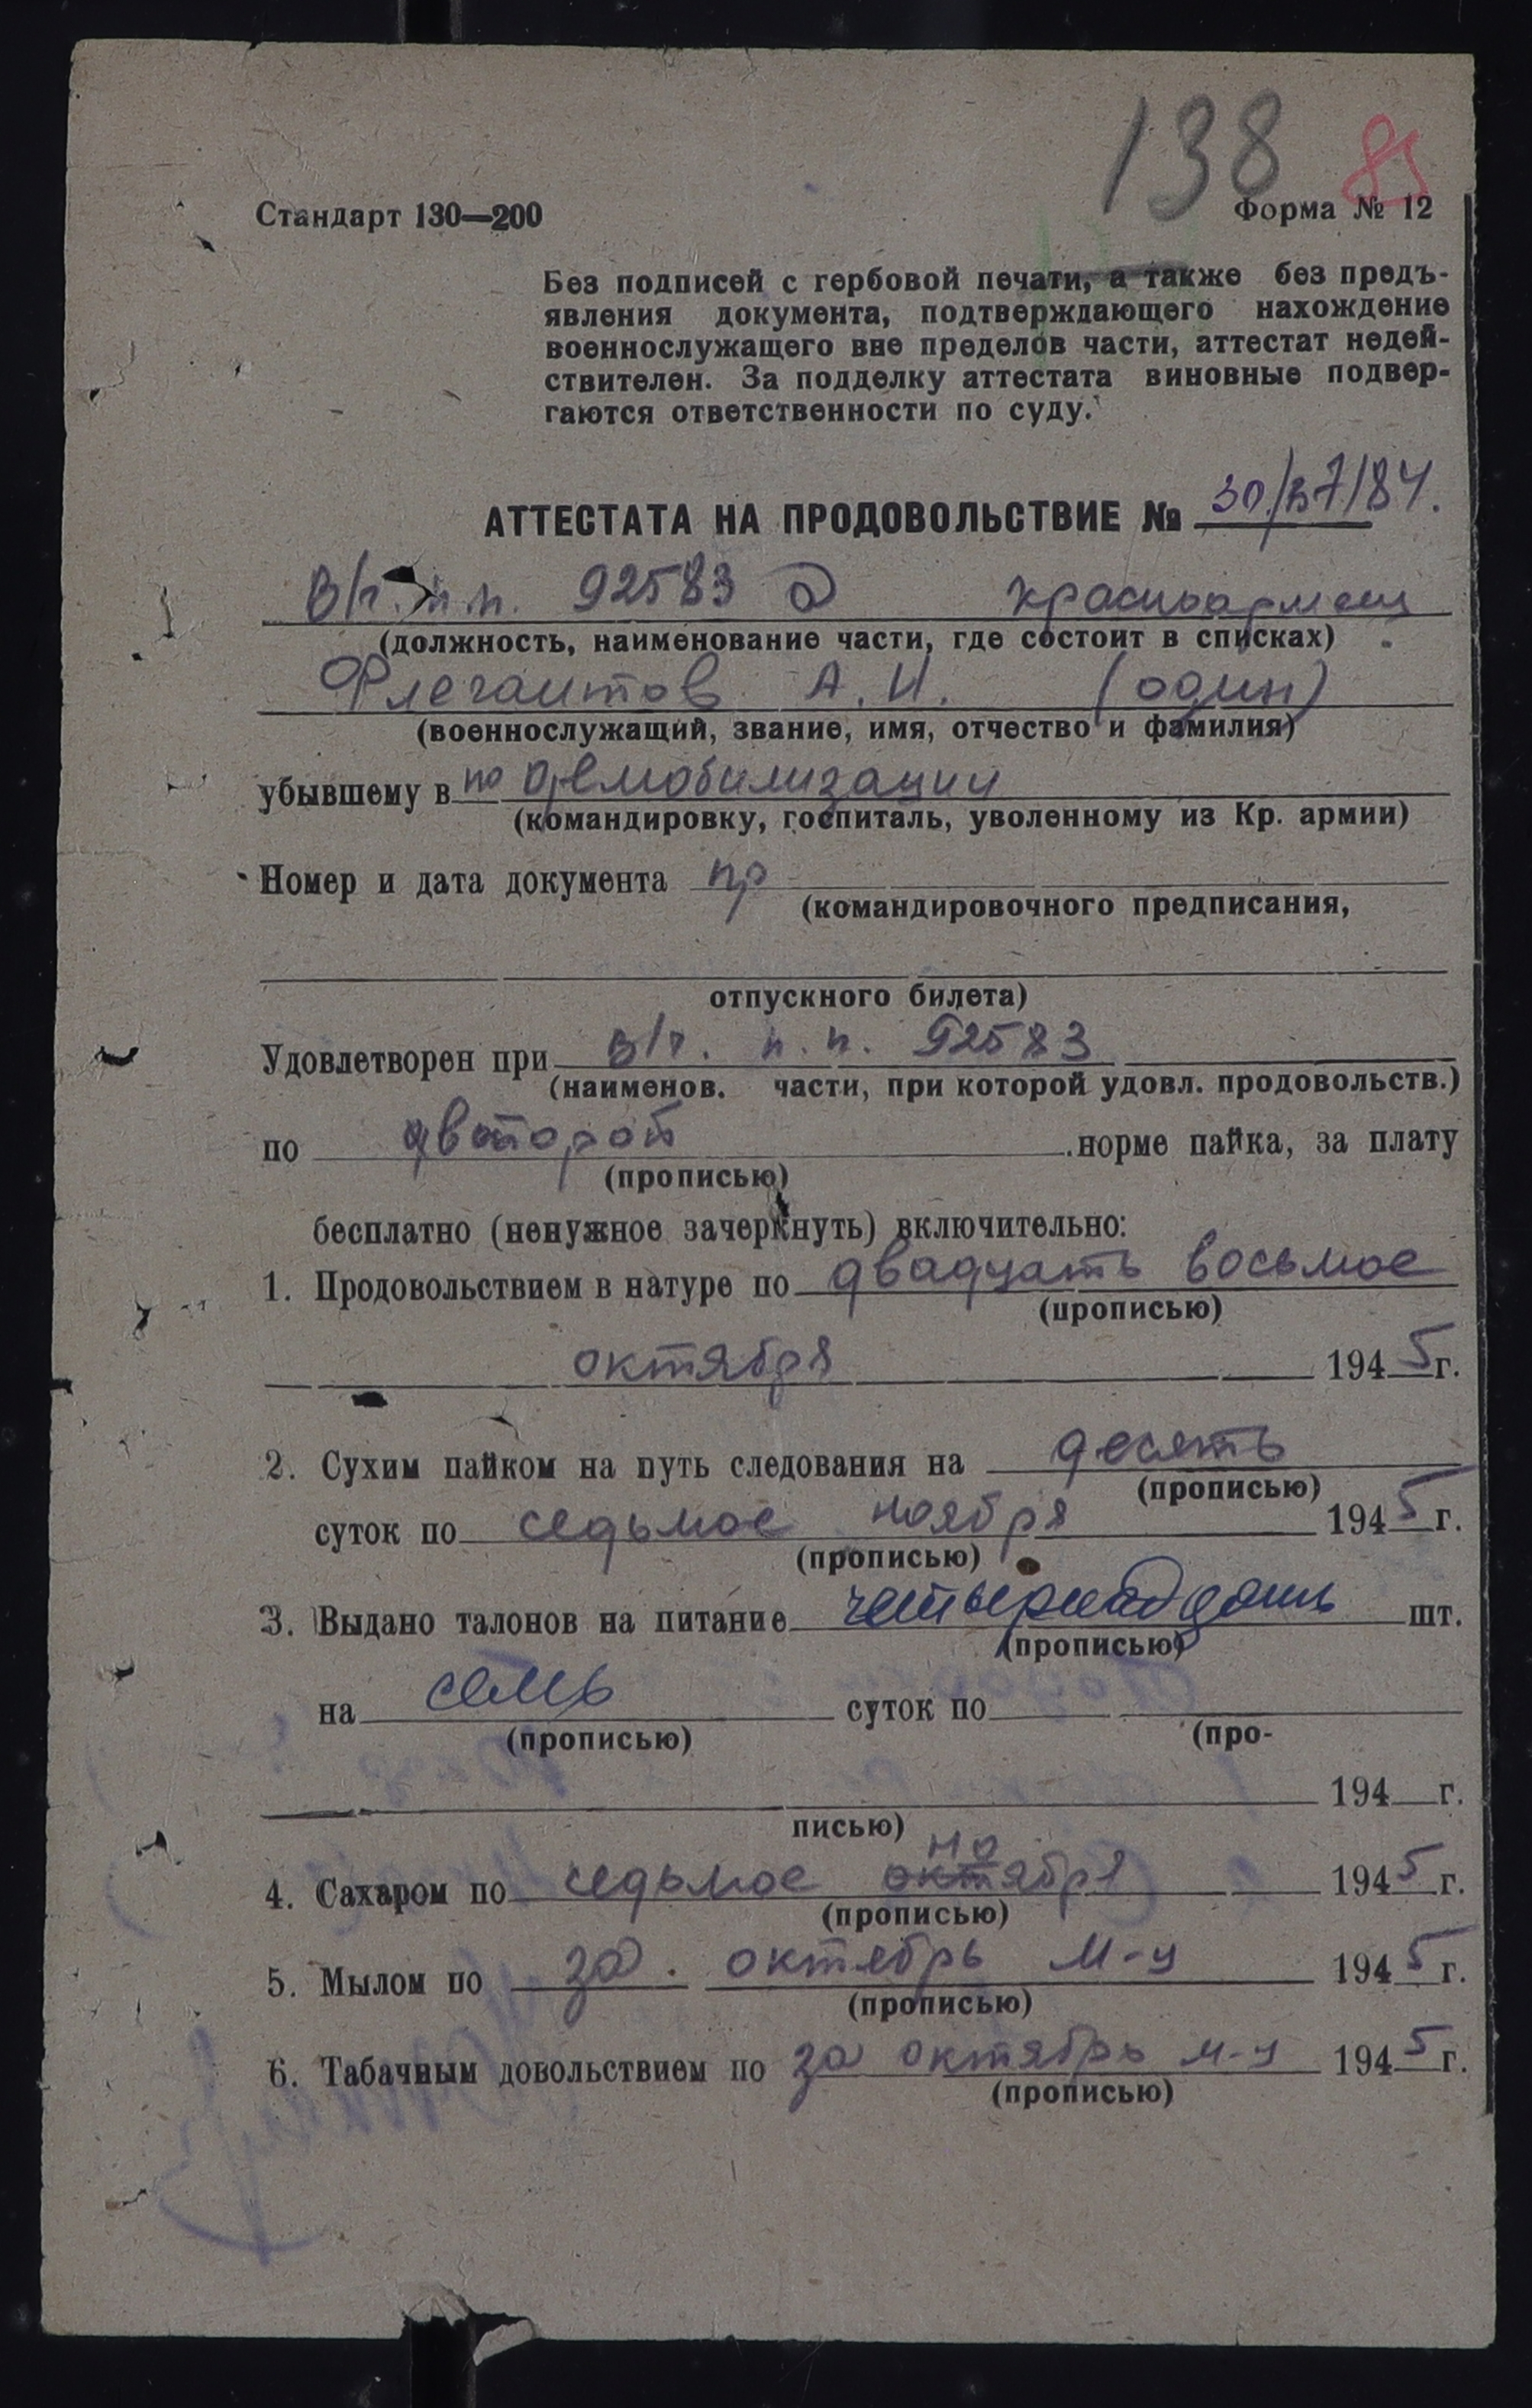 138 85
Стандарт 130—200 Форма № 12
Без подписей с гербовой печати, а также без предъ-
явления документа, подтверждающего нахождение
военнослужащего вне пределов части, аттестат недей-
ствителен. За подделку аттестата виновные подвер-
гаются ответственности по суду.
АТТЕСТАТА НА ПРОДОВОЛЬСТВИЕ №
В/ч. п.п. 92583 красноармеец
(должность, наименование части, где состоит в списках)
Флегантов А. И. (один)
(военнослужащий, звание, имя, отчество и фамилия)
убывшему в по демобилизации
(командировку, госпиталь, уволенному из Кр. армии)
Номер и дата документа пр
(командировочного предписания,
отпускного билета)
Удовлетворен при в/ч. п.п. 92583
(наименов. части, при которой удовл. продовольств.)
по второй норме пайка, за плату
(прописью)
бесплатно (ненужное зачеркнуть) включительно:
1. Продовольствием в натуре по двадцать восьмое
(прописью)
октября 1945 г.
2. Сухим пайком на путь следования на десять
(прописью)
суток по седьмое ноября 1945 г.
(прописью)
3. Выдано талонов на питание четырнадцать шт.
(прописью)
на семь суток по
(прописью) (про-
194 г.
писью)
но
4. Сахаром по седьмое октября 1945 г.
(прописью)
5. Мылом по за октябрь м-ц 1945 г.
(прописью)
6. Табачным довольствием по за октябрь м-ц 1945 г.
(прописью)